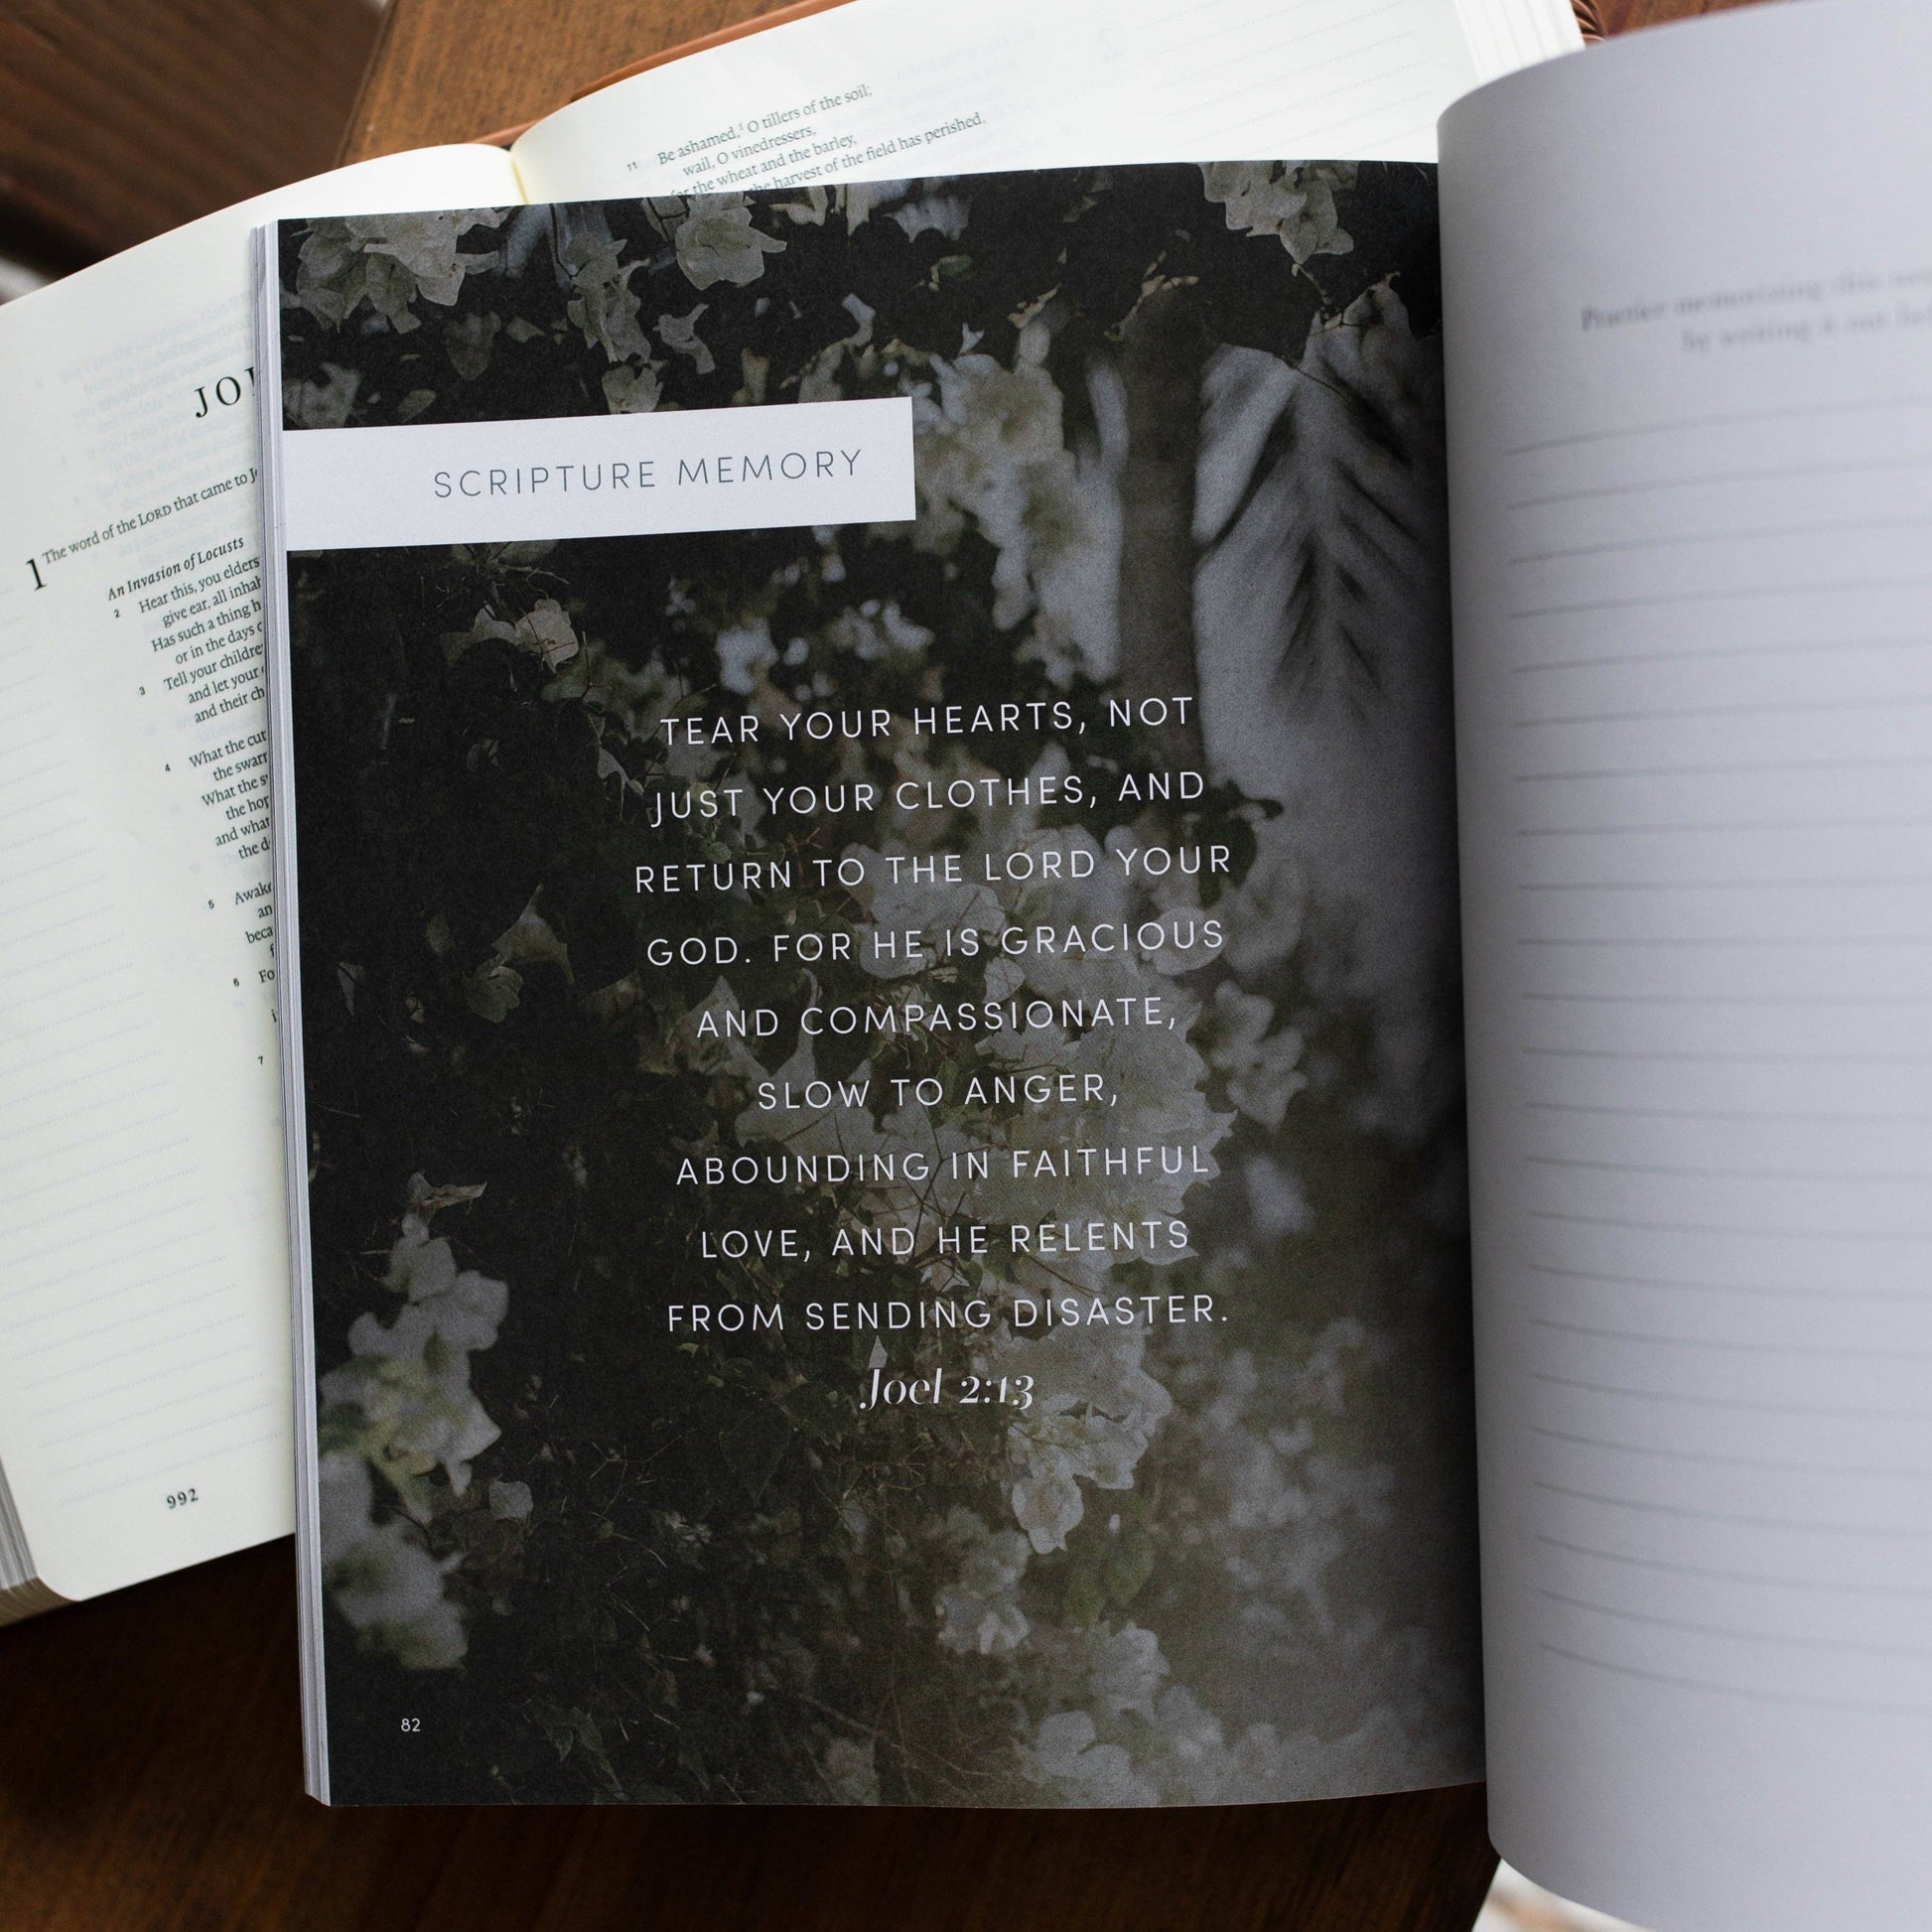 11 Be ashamed,¹ O tillers of the soil;
wail, O vinedressers,
for the wheat and the barley,
the harvest of the field has perished.
1 The word of the LORD that came to
An Invasion of Locusts
2 Hear this, you elders
give ear, all
Has such a thing
or in the days
3 Tell your
and let your
and their
4 What the
the
What the
the
and what
the
5 Awake
6
7
992
SCRIPTURE MEMORY
TEAR YOUR HEARTS, NOT
JUST YOUR CLOTHES, AND
RETURN TO THE LORD YOUR
GOD. FOR HE IS GRACIOUS
AND COMPASSIONATE,
SLOW TO ANGER,
ABOUNDING IN FAITHFUL
LOVE, AND HE RELENTS
FROM SENDING DISASTER.
Joel 2:13
82
Practice memorizing this
by writing it out